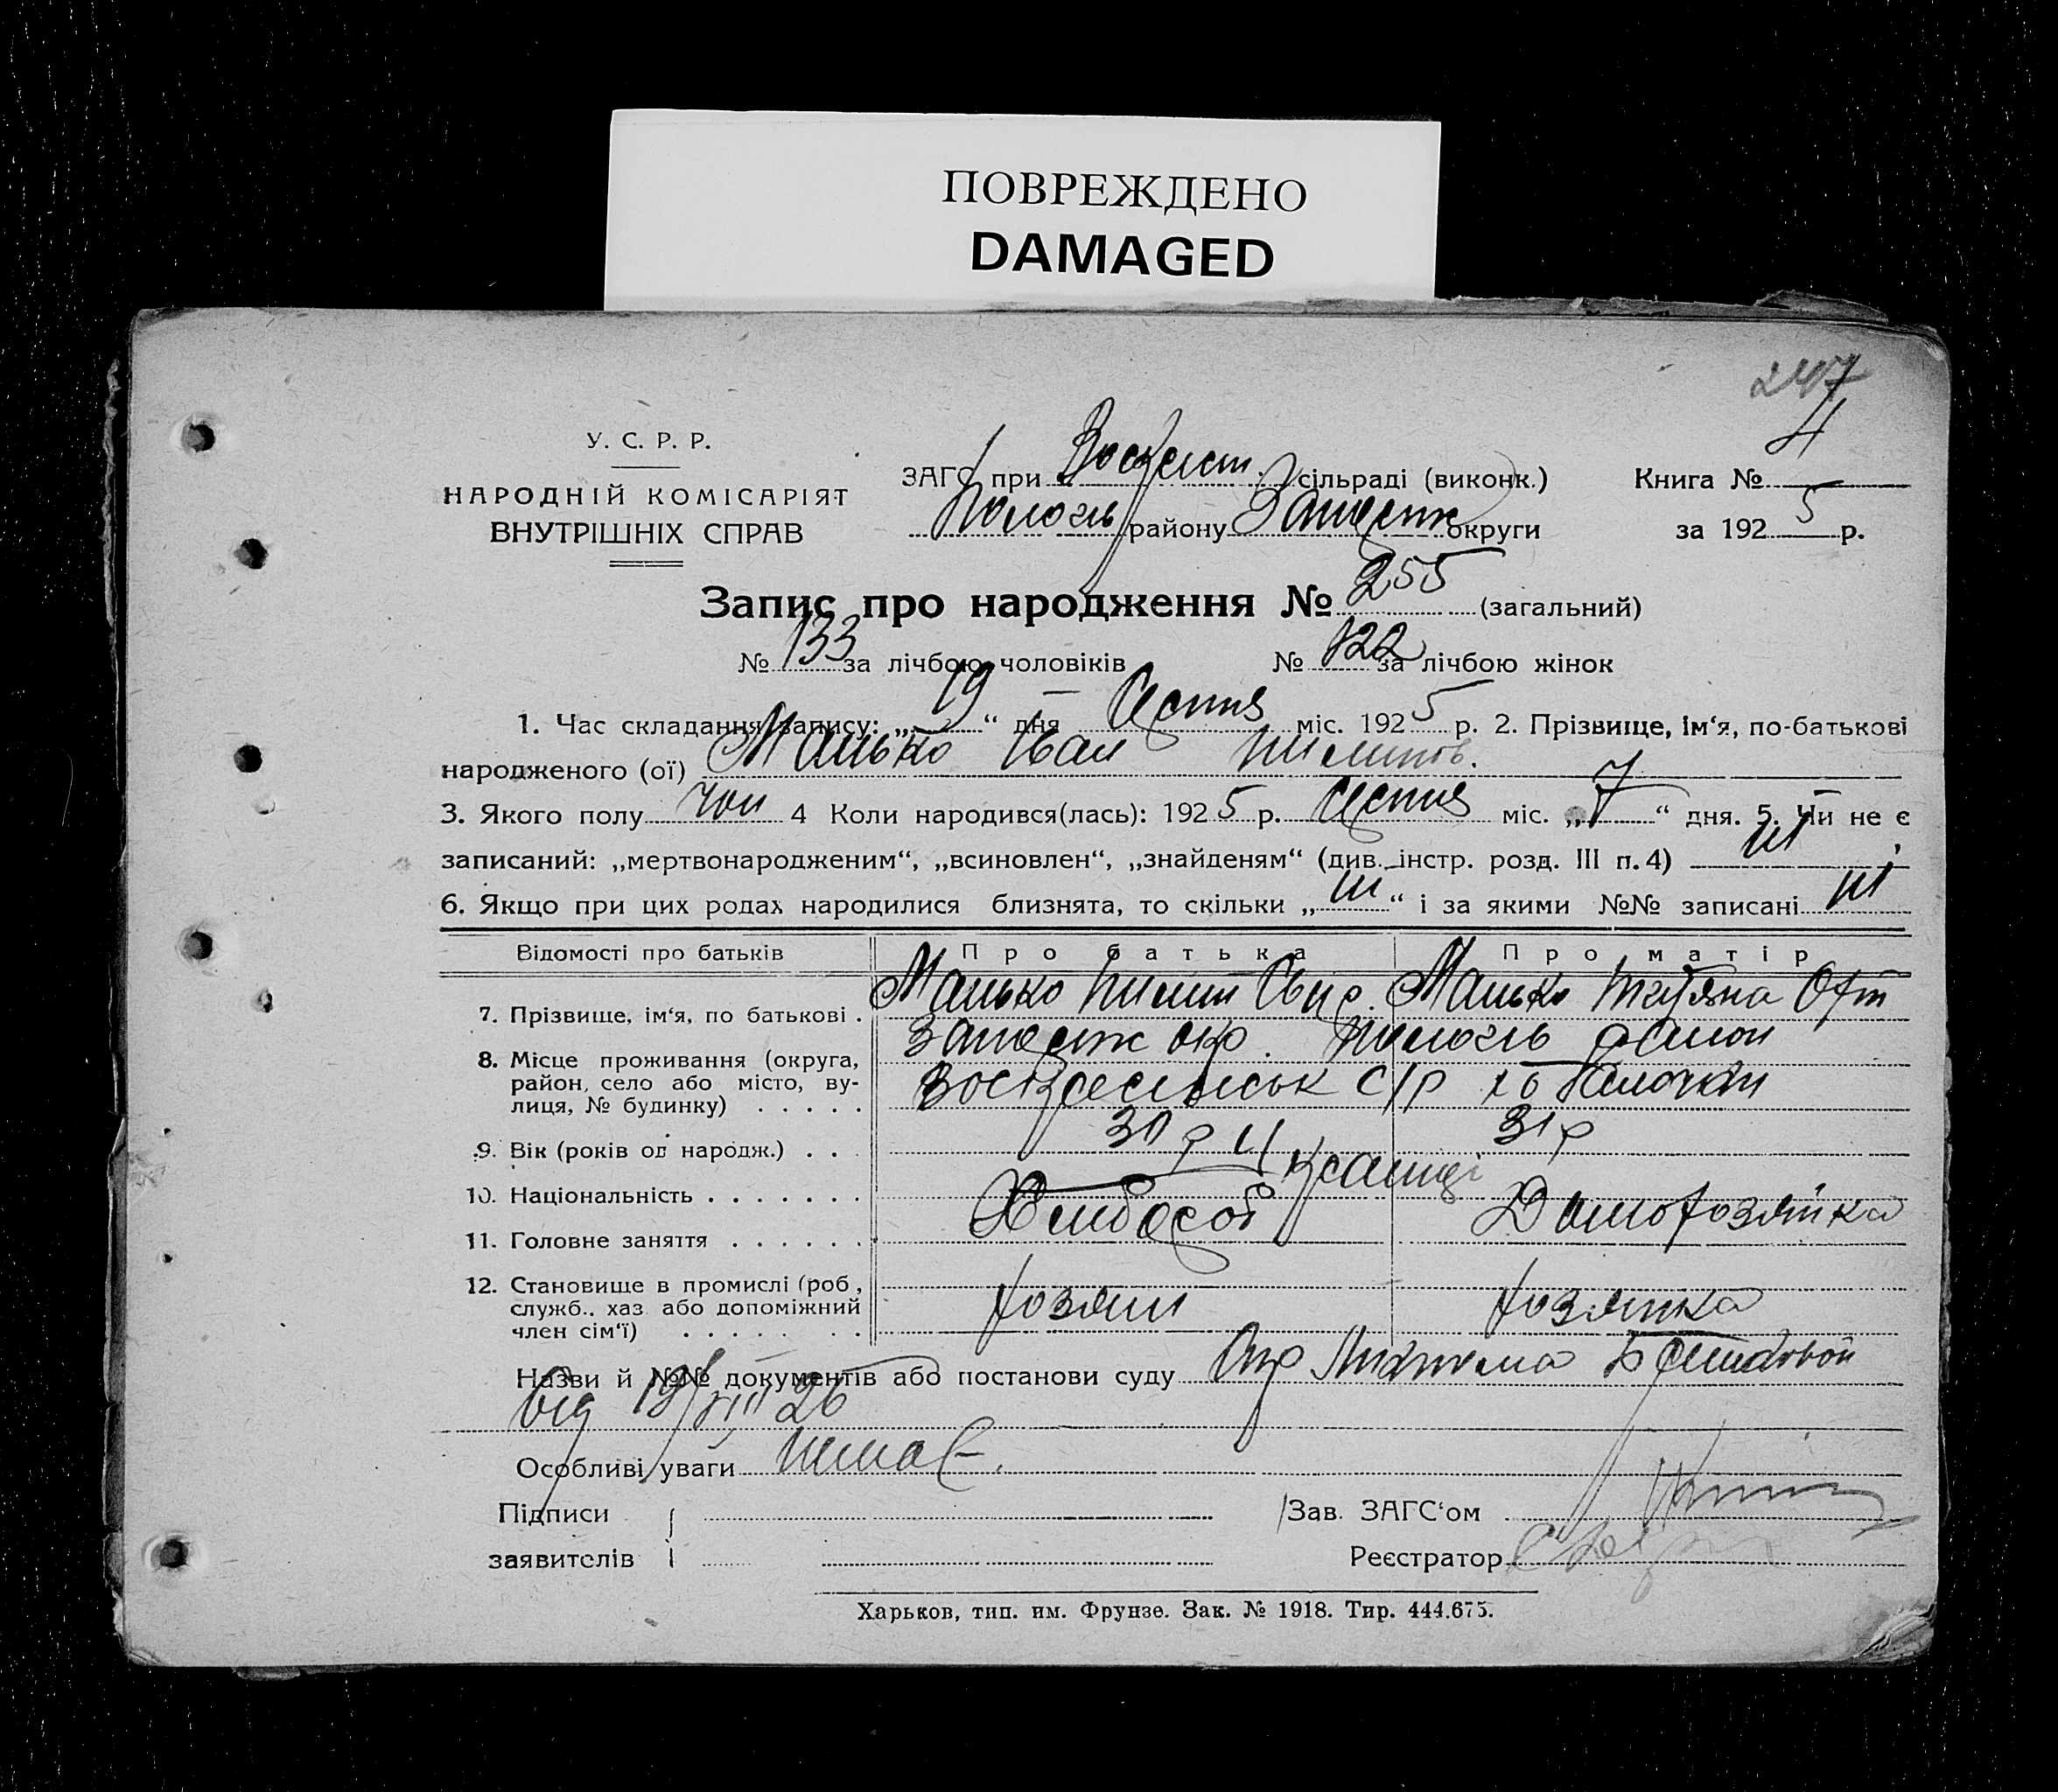 ПОВРЕЖДЕНО
DAMAGED
247
4
У. С. Р. Р.
НАРОДНІЙ КОМІСАРІЯТ
ВНУТРІШНІХ СПРАВ
ЗАГС при Воскресен. сільраді (виконк.)
району Запоріж округи
Книга №
за 1925 р.
Запис про народження № 255 (загальний)
№ 133 за лічбою чоловіків № 122 за лічбою жінок
1. Час складання запису: „19“ дня Серпня міс. 1925 р. 2. Прізвище, ім‘я, по-батькові
народженого (ої) Манько Іван Пилипов.
3. Якого полу чол 4 Коли народився(лась): 1925 р. Серпня міс. „7“ дня. 5. Чи не є
записаний: „мертвонародженим“, „всиновлен“, „знайденям“ (див. інстр. розд. III п. 4) ні
6. Якщо при цих родах народилися близнята, то скільки „ні“ і за якими №№ записані ні
Відомості про батьків Про батька Про матір
7. Прізвище, ім‘я, по батькові . Манько Пилип Манько Татяна
8. Місце проживання (округа,
район, село або місто, ву-
лиця, № будинку) . . . . .
Запоріж окр. район
Воскресенськ С/Р
9. Вік (років од народж.) . . . 30 р 31 р
10. Національність . . . . . . . Українці
11. Головне заняття . . . . . . Хлібороб Домохозяйка
12. Становище в промислі (роб.,
служб., хаз. або допоміжний
член сім‘ї) . . . . . . .
хозяин хозяйка
Назви й №№ документів або постанови суду
від 19/VIII 26
Особливі уваги нема
Підписи
заявителів
Зав. ЗАГС‘ом
Реєстратор
Харьков, тип. им. Фрунзе. Зак. № 1918. Тир. 444.675.